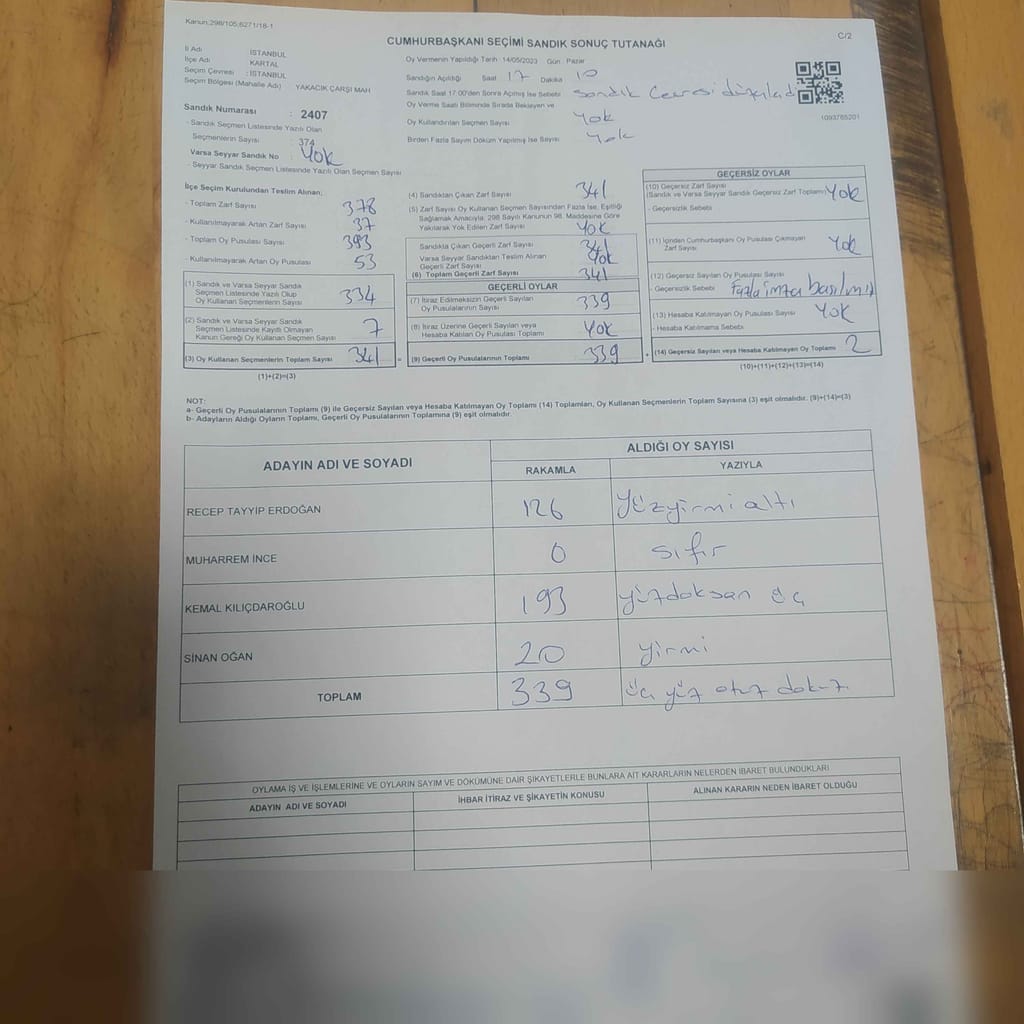 Kanun:298/105;6271/18-1
C/2
CUMHURBAŞKANI SEÇİMİ SANDIK SONUÇ TUTANAĞI
İl Adı : İSTANBUL
İlçe Adı : KARTAL
Seçim Çevresi : İSTANBUL
Seçim Bölgesi (Mahalle Adı) YAKACIK ÇARŞI MAH
Sandık Numarası : 2407
- Sandık Seçmen Listesinde Yazılı Olan
Seçmenlerin Sayısı : 374
Varsa Seyyar Sandık No : Yok
- Seyyar Sandık Seçmen Listesinde Yazılı Olan Seçmen Sayısı
Oy Vermenin Yapıldığı Tarih 14/05/2023 Gün Pazar
Sandığın Açıldığı Saat 17 Dakika 10
Sandık Saat 17:00'den Sonra Açılmış İse Sebebi Sandık Çevresi düzenledi
Oy Verme Saati Bitiminde Sırada Bekleyen ve
Oy Kullandırılan Seçmen Sayısı Yok
Birden Fazla Sayım Döküm Yapılmış İse Sayısı Yok
1093765201
İlçe Seçim Kurulundan Teslim Alınan;
- Toplam Zarf Sayısı 378
- Kullanılmayarak Artan Zarf Sayısı 37
- Toplam Oy Pusulası Sayısı 393
- Kullanılmayarak Artan Oy Pusulası 53
(1) Sandık ve Varsa Seyyar Sandık
Seçmen Listesinde Yazılı Olup
Oy Kullanan Seçmenlerin Sayısı 334
(2) Sandık ve Varsa Seyyar Sandık
Seçmen Listesinde Kayıtlı Olmayan
Kanun Gereği Oy Kullanan Seçmen Sayısı 7
(3) Oy Kullanan Seçmenlerin Toplam Sayısı 341 =
(1)+(2)=(3)
(4) Sandıktan Çıkan Zarf Sayısı 341
(5) Zarf Sayısı Oy Kullanan Seçmen Sayısından Fazla İse, Eşitliği
Sağlamak Amacıyla, 298 Sayılı Kanunun 98. Maddesine Göre
Yakılarak Yok Edilen Zarf Sayısı Yok
Sandıkta Çıkan Geçerli Zarf Sayısı 341
Varsa Seyyar Sandıktan Teslim Alınan
Geçerli Zarf Sayısı Yok
(6) Toplam Geçerli Zarf Sayısı 341
GEÇERLİ OYLAR
(7) İtiraz Edilmeksizin Geçerli Sayılan
Oy Pusulalarının Sayısı 339
(8) İtiraz Üzerine Geçerli Sayılan veya
Hesaba Katılan Oy Pusulası Toplamı Yok
(9) Geçerli Oy Pusulalarının Toplamı 339 +
GEÇERSİZ OYLAR
(10) Geçersiz Zarf Sayısı
(Sandık ve Varsa Seyyar Sandık Geçersiz Zarf Toplamı) Yok
- Geçersizlik Sebebi
(11) İçinden Cumhurbaşkanı Oy Pusulası Çıkmayan
Zarf Sayısı Yok
(12) Geçersiz Sayılan Oy Pusulası Sayısı
- Geçersizlik Sebebi Fazla imza basılmış
(13) Hesaba Katılmayan Oy Pusulası Sayısı Yok
- Hesaba Katılmama Sebebi
(14) Geçersiz Sayılan veya Hesaba Katılmayan Oy Toplamı 2
(10)+(11)+(12)+(13)=(14)
NOT:
a- Geçerli Oy Pusulalarının Toplamı (9) ile Geçersiz Sayılan veya Hesaba Katılmayan Oy Toplamı (14) Toplamları, Oy Kullanan Seçmenlerin Toplam Sayısına (3) eşit olmalıdır. (9)+(14)=(3)
b- Adayların Aldığı Oyların Toplamı, Geçerli Oy Pusulalarının Toplamına (9) eşit olmalıdır.
ADAYIN ADI VE SOYADI ALDIĞI OY SAYISI
RAKAMLA YAZIYLA
RECEP TAYYIP ERDOĞAN 126 yüzyirmi altı
MUHARREM İNCE 0 sıfır
KEMAL KILIÇDAROĞLU 193 yüzdoksan üç
SİNAN OĞAN 20 yirmi
TOPLAM 339 üç yüz otuz dokuz
OYLAMA İŞ VE İŞLEMLERİNE VE OYLARIN SAYIM VE DÖKÜMÜNE DAİR ŞİKAYETLERLE BUNLARA AİT KARARLARIN NELERDEN İBARET BULUNDUKLARI
ADAYIN ADI VE SOYADI İHBAR İTİRAZ VE ŞİKAYETİN KONUSU ALINAN KARARIN NEDEN İBARET OLDUĞU